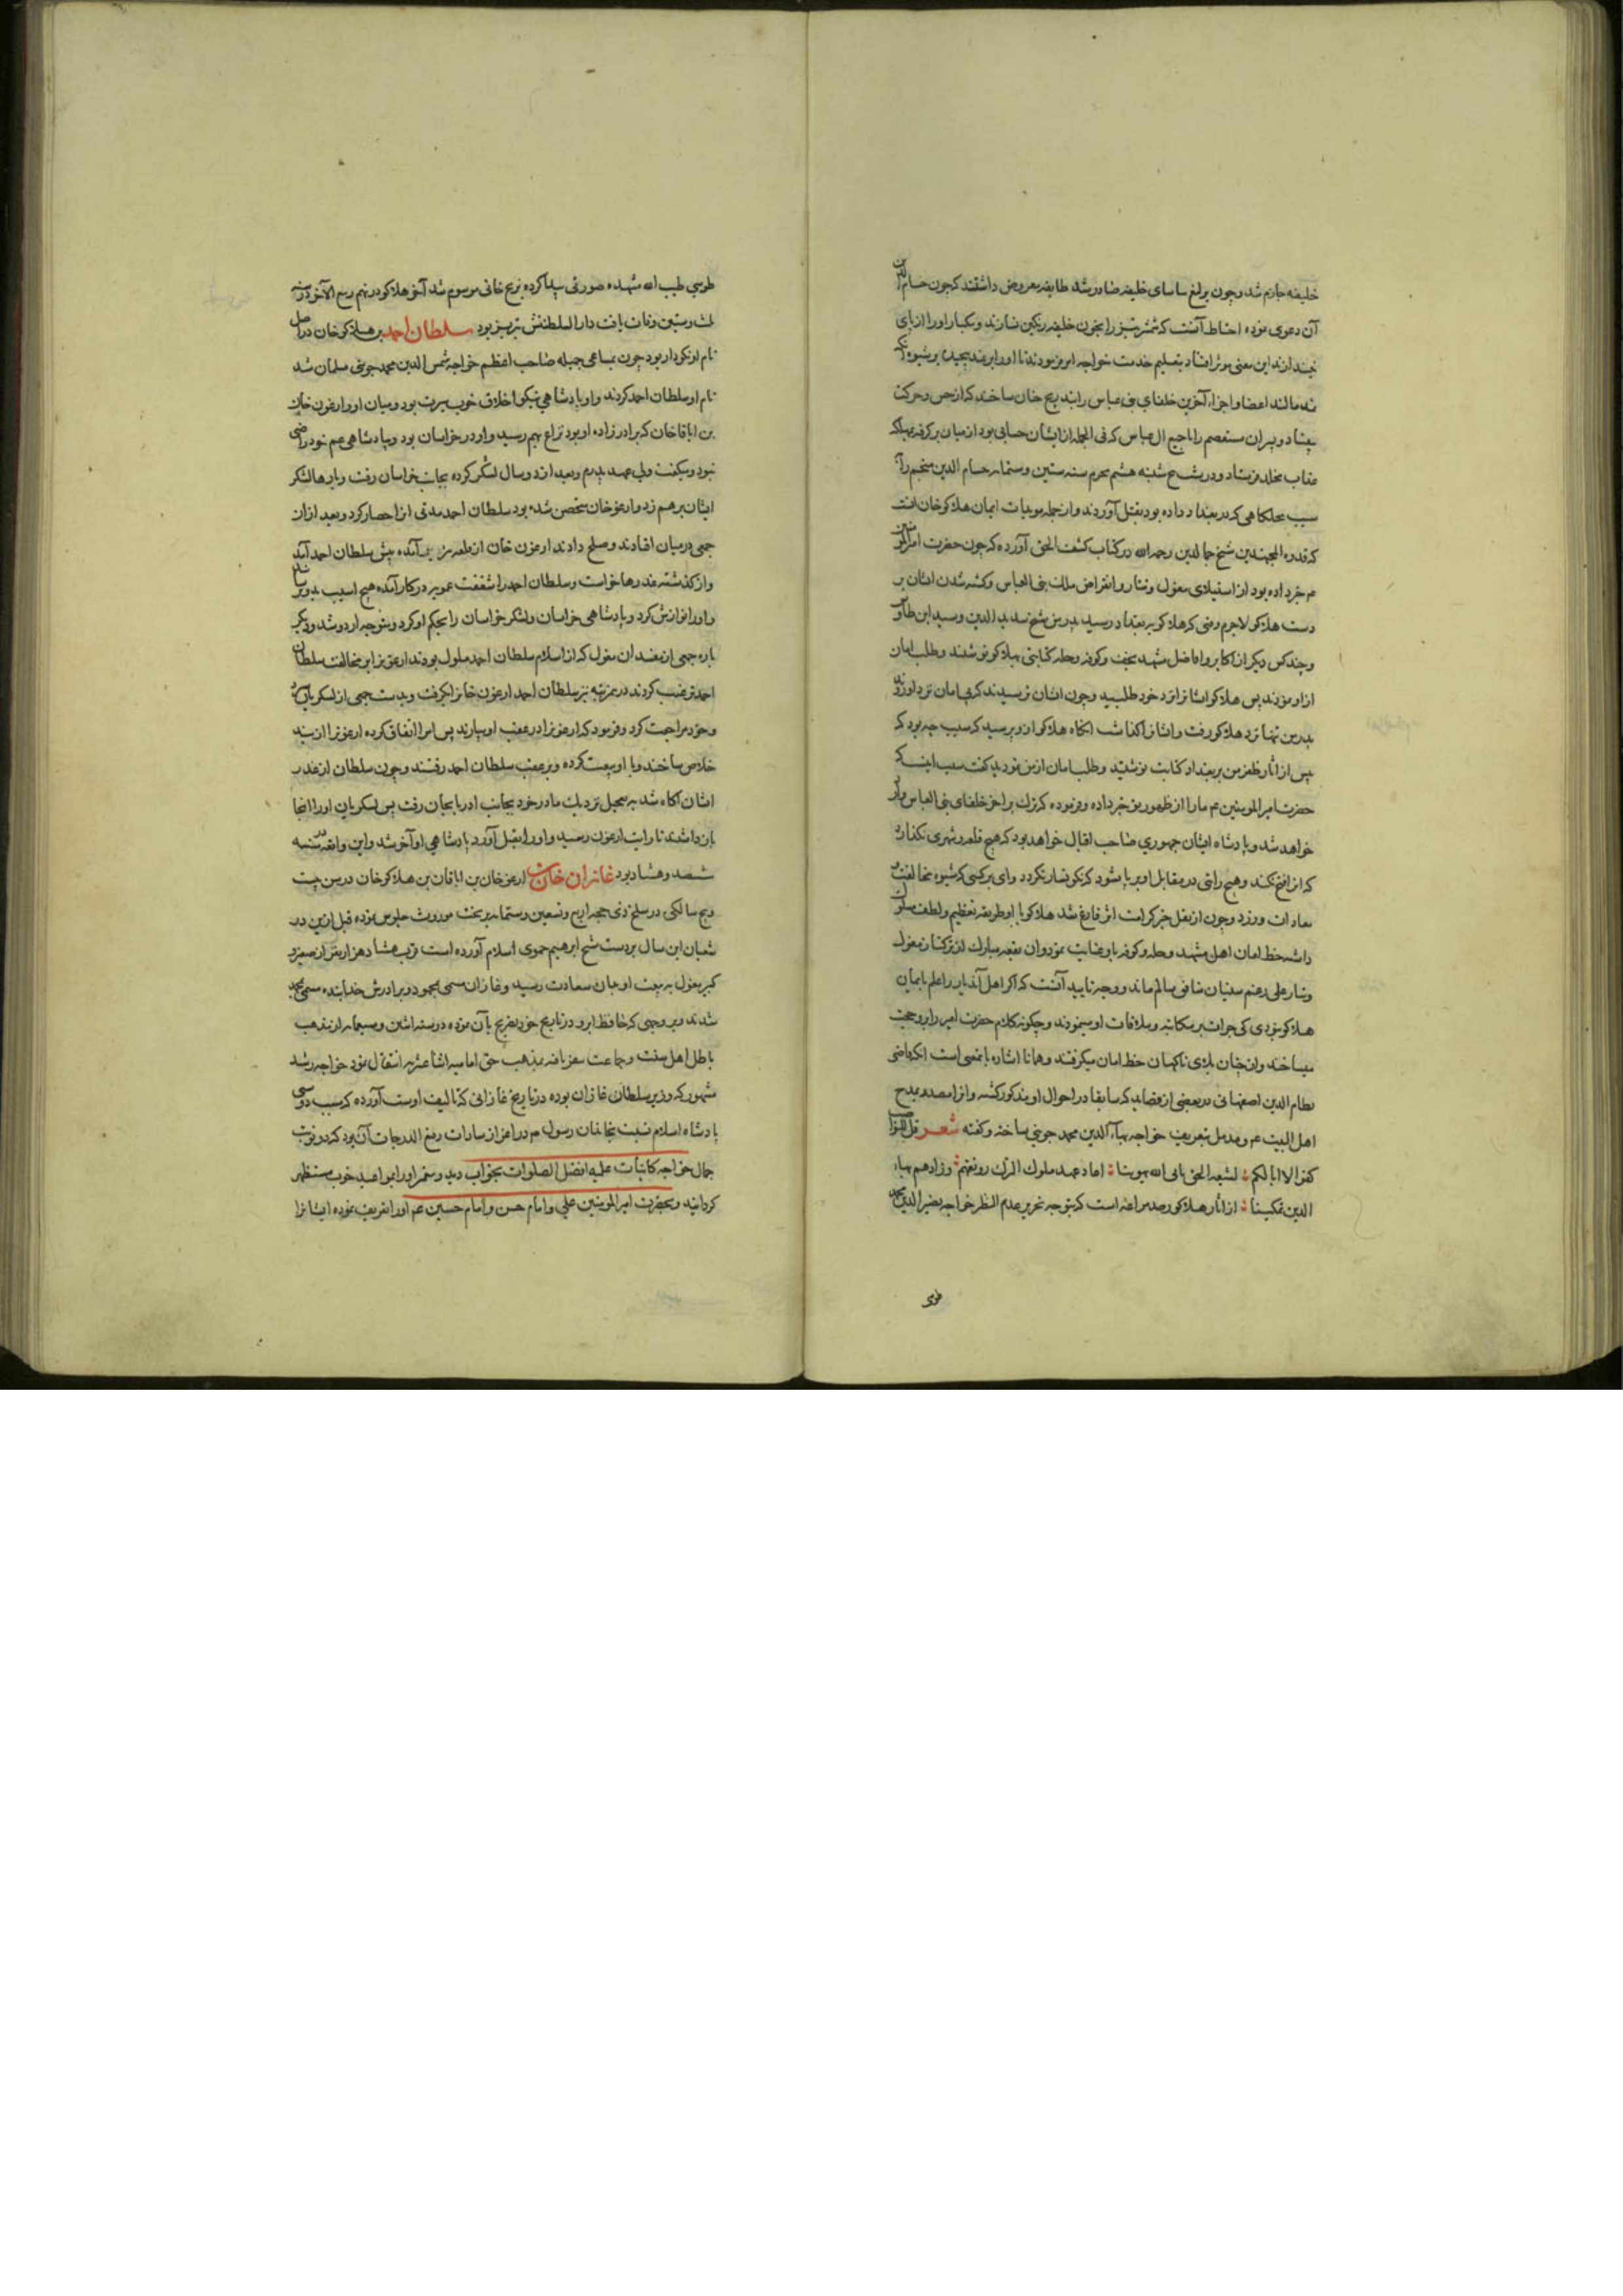 خلیفه جازم شد و چون یرلیغ سیاست خلیفه صادر شد طایفه معروض داشتند که چون حسام الدین
آن دعوی نموده احتیاط آنست که شمشیر تیز را بخون خلیفه رنگین نسازند و یکبار او را از پای
نیندازند این معنی موثر افتاد بتعلیم خدمت خواجه امر نمودند تا او را در نمد پیچیدند و بشیوه که
نمد مالند اعضا و اجزاء آخرین خلفای بنی عباس را بتدریج چنان ساختند که از حس و حرکت
بیفتاد و پسران مستعصم را با جمیع آل عباس که فی الجمله از ایشان حسابی بود از میان برگرفته بمهالک
عذاب مخلد فرستاد و در شب پنجشنبه هشتم محرم سنه ستین و ستمایه حسام الدین منجم را
سبب مچلکاهی که در بغداد داده بود بقتل آوردند و از جمله مویدات ایمان هلاکو خان آنست
که قدوه المجتهدین شیخ جمال الدین رحمه الله در کتاب کشف الحق آورده که چون حضرت امیرالمومنین
ع م خبر داده بود از استیلای مغول و تتار و انقراض ملک بنی العباس و کشته شدن ایشان بر
دست هلاکو لاجرم وقتی که هلاکو ببغداد رسید پدر من شیخ سدید الدین و سید ابن طاوس
و چند کس دیگر از اکابر و افاضل مشهد نجف و کوفه و حله کتابتی بهلاکو نوشتند و طلب امان
از او نمودند پس هلاکو ایشانرا نزد خود طلبید و چون ایشان ترسیدند که بی امان نزد او روند
پدر من تنها نزد هلاکو رفت و ایشانرا گذاشت آنگاه هلاکو از و پرسید که سبب چه بود که
پیش از آثار ظفر من بر بغداد کتابت نوشتید و طلب امان از من نمودید گفت سبب اینست که
حضرت امیر المومنین ع م ما را از ظهور تو خبر داده و فرموده که ترک بر آخر خلفای بنی العباس وارد
خواهد شد و پادشاه ایشان جمهوری صاحب اقبال خواهد بود که هیچ قلعه و شهری نگذارد
که آنرا فتح نکند و هیچ رایتی در مقابل او برپا نشود که نگونسار نگردد وای بر کسی که شیوه مخالفت و
معادات ورزد و چون از نقل خبر کرامت اثر فارغ شد هلاکو با او طریقه تعظیم و لطف سلوک
داشته خط امان اهل مشهد و حله و کوفه باو عنایت نمود و آن بقعه مبارک از ترکتاز مغول
و تتار علی رغم سنیان شافی سالم ماند و وجه تایید آنست که اگر اهل آن دیار را علم بایمان
هلاکو نبودی کی جرات بر مکاتبه و ملاقات او مینمودند و چگونه کلام حضرت امیر را بر و حجت
میساختند و از چنان بلای ناگهان خط امان میگرفتند و همانا اشاره باینمعنی است آنکه قاضی
نظام الدین اصفهانی در بعضی از قصاید که سابقا در احوال او مذکور گشته و آنرا مصدر بمدح
اهل البیت ع م و مذیل بتعریف خواجه بهآء الدین محمد جوینی ساخته و گفته شعر قل للنواصب
کفوا لا ابا لکم لشیعة الحق یابی الله تهوینا اعاد عهد ملوک الترک رونقهم و زادهم بهاء
الدین تمکینا از آثار هلاکو رصد مراغه است که بتوجه نحریر عدیم النظیر خواجه نصیر الدین محمد
طوسی
طوسی طیب الله مشهده صورتی پیدا کرده بزیج خانی موسوم شد آخر هلاکو در نهم ربیع الآخر در سنه
ثلث و ستین وفات یافت دار السلطنتش تبریز بود سلطان احمد بن هلاکو خان در اصل
نام او نکودار بود چون بمساعی جمیله صاحب اعظم خواجه شمس الدین محمد جوینی مسلمان شد
نام او سلطان احمد کردند و او پادشاهی نیکو اخلاق خوب سیرت بود و میان او و ارغون خان
بن اباقا خان که برادرزاده او بود نزاع بهم رسید و او در خراسان بود و بپادشاهی عم خود راضی
نبود و میگفت ولی عهد پدرم و بعد از دو سال لشکر کرده بجانب خراسان رفت و بارها لشکر
ایشان برهم زد و ارغو خان متحصن شده بود سلطان احمد مدتی او را حصار کرد و بعد از آن
جمعی در میان افتادند و صلح دادند ارغون خان از قلعه بزیر آمده پیش سلطان احمد آمد
و از گذشته عذرها خواست و سلطان احمد را شفقت عمویه در کار آمده هیچ آسیب بدو نرسانید
و او را نوازش کرد و پادشاهی خراسان و لشکر خراسان را بحکم او کرد و متوجه اردو شد و دیگر
باره جمعی از مفسدان مغول که از اسلام سلطان احمد ملول بودند ارغونرا بر مخالفت سلطان
احمد ترغیب کردند درین مرتبه نیز سلطان احمد ارغون خانرا بگرفت و بدست جمعی از لشکریان سپرد
و خود مراجعت کرد و فرمود که ارغونرا در عقب او بیارند پس امرا اتفاق کرده ارغونرا از بند
خلاص ساختند و با او بیعت کرده و بر عقب سلطان احمد رفتند و چون سلطان از غدر
ایشان آگاه شد به تعجیل نزدیک مادر خود بجانب آذربایجان رفت پس لشکریان او را آنجا
بازداشتند تا رایت ارغون رسید و او را بقتل آورد پادشاهی او آخر شد و این واقعه در سنه
ششصد و هشتاد بود غازان خان بن ارغو خان بن اباقان بن هلاکو خان در سن بیست
و پنج سالگی در سلخ ذی حجه اربع و تسعین و ستمایه بر تخت موروث جلوس نموده قبل ازین در
شعبان این سال بر دست شیخ ابرهیم حموی اسلام آورده است قرب هشتاد هزار نفر از صغیر و
کبیر مغول به تبعیت او بدان سعادت رسید و غازان مسمی بمحمود و برادرش خدابنده مسمی بمحمد
شدند و بر وجهی که حافظ ابرو در تاریخ خود تصریح بآن نموده در سنه اثنین و سبعمایه از مذهب
باطل اهل سنت و جماعت متنفر یافته بمذهب حق امامیه اثنا عشریه انتقال نمود خواجه رشید
مشهور که وزیر سلطان غازان بوده در تاریخ غازانی که تالیف اوست آورده که سبب دوستی
پادشاه اسلام نسبت بخاندان رسول ص م و اعزاز سادات رفیع الدرجات آن بود که دو نوبت
جمال خواجه کاینات علیه افضل الصلوات بخواب دید و پیغمبر او را بمواعید خوب مستظهر
گردانید و بحضرت امیر المومنین علی و امام حسن و امام حسین ع م او را تعریف نموده ایشانرا